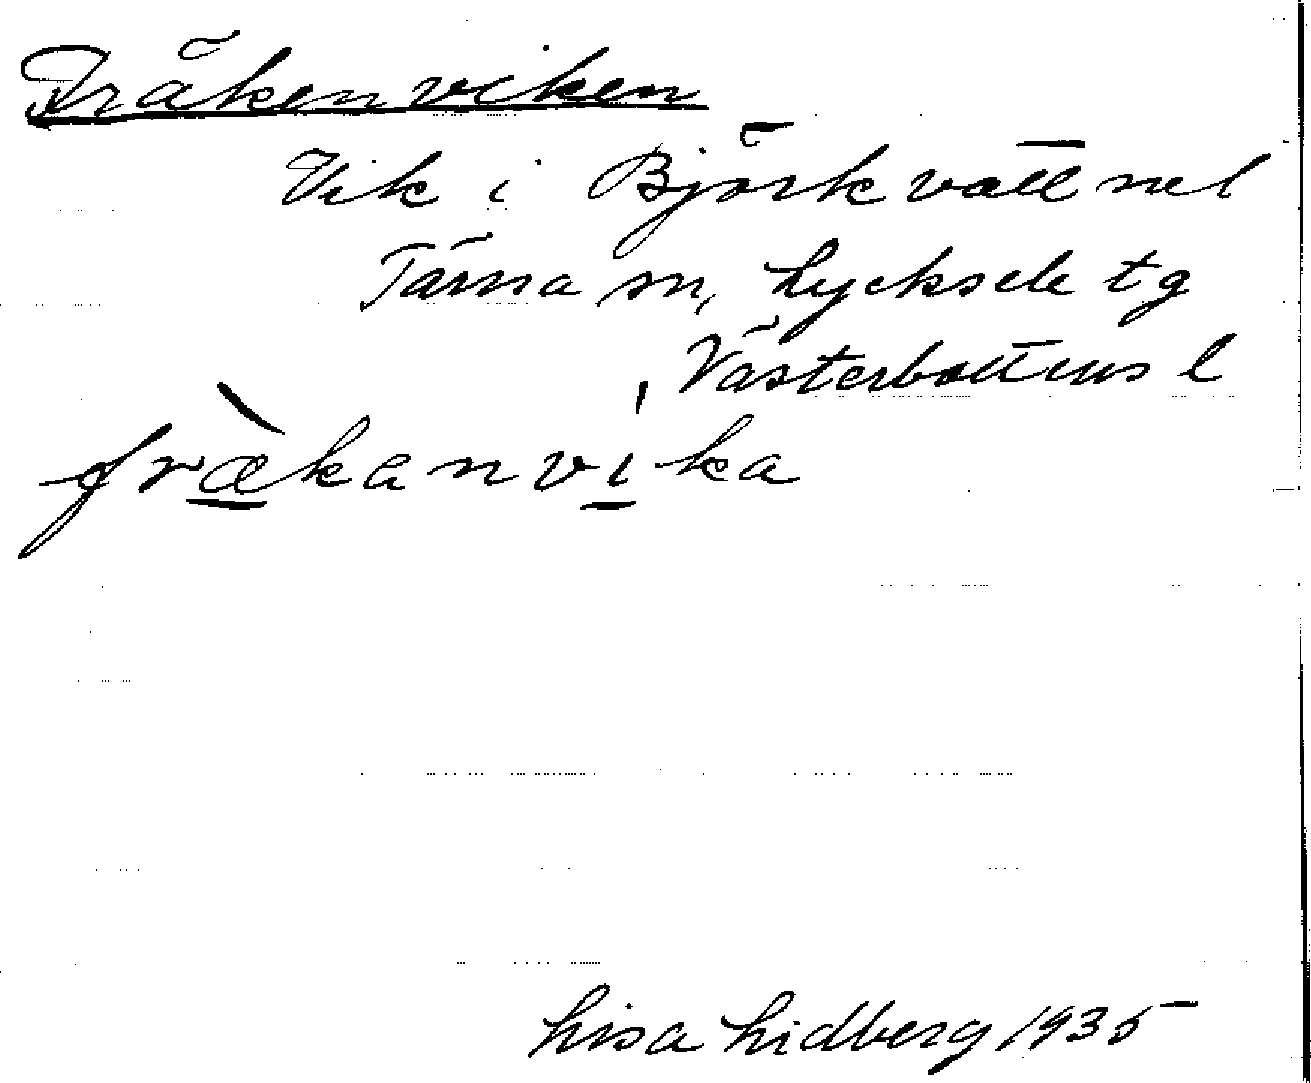 Fräkenviken
Vik i Björkvattnet
Tärna sn, Lycksele tg
Västerbottens l
fræ̀kanvíka
Lisa Lidberg 1935